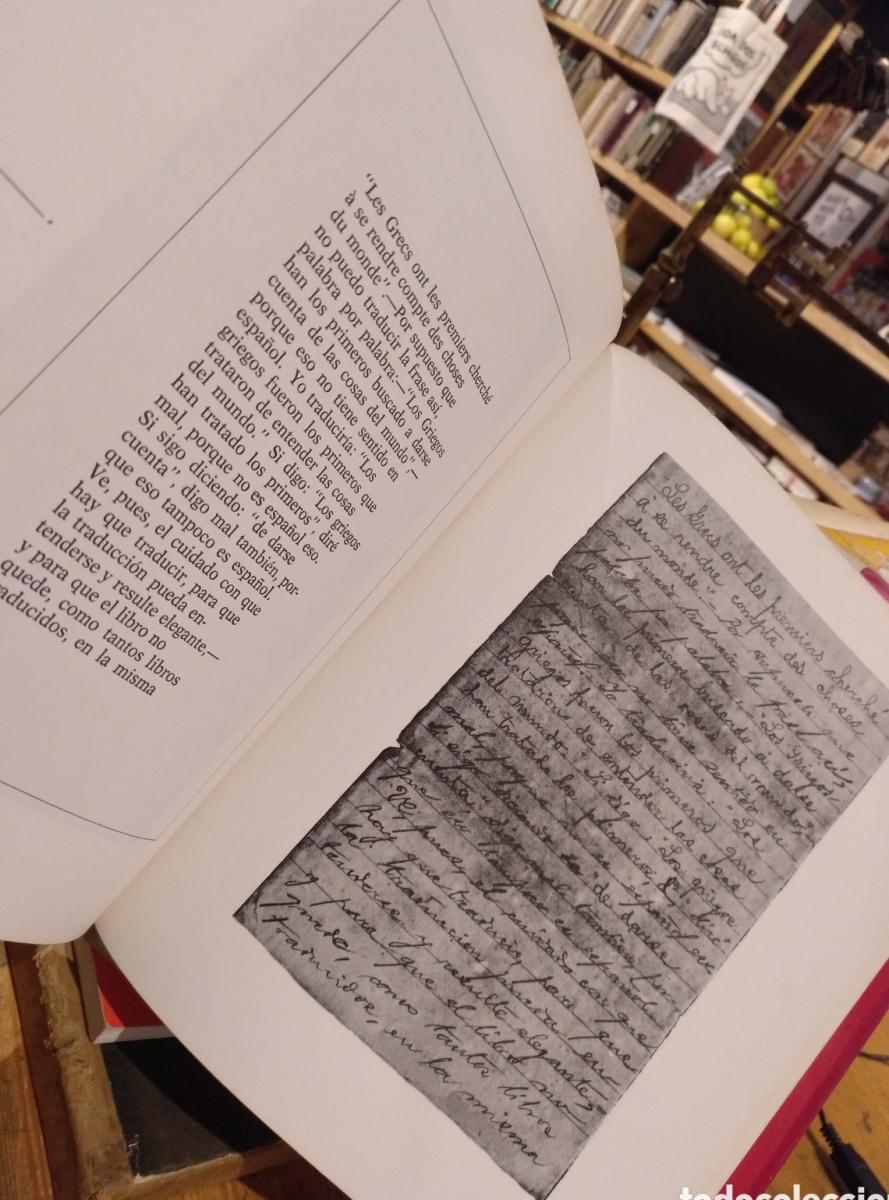 “Les Grecs ont les premiers cherché
à se rendre compte des choses
du monde”.—Por supuesto que
no puedo traducir la frase así,
palabra por palabra:—“Los Griegos
han los primeros buscado a darse
cuenta de las cosas del mundo”,—
porque eso no tiene sentido en
español. Yo traduciría: “Los
griegos fueron los primeros que
trataron de entender las cosas
del mundo.” Si digo: “Los griegos
han tratado los primeros”, diré
mal, porque no es español eso.
Si sigo diciendo: “de darse
cuenta”, digo mal también, por-
que eso tampoco es español.
Ve, pues, el cuidado con que
hay que traducir, para que
la traducción pueda en-
tenderse y resulte elegante,—
y para que el libro no
quede, como tantos libros
aducidos, en la misma
“Les Grecs ont les premiers cherché
à se rendre compte des choses
du monde”.— Por supuesto que
no puedo traducir la frase así,
palabra por palabra:— “Los Griegos
han los primeros buscado a darse
cuenta de las cosas del mundo”,
porque eso no tiene sentido en
español. Yo traduciría: “Los
griegos fueron los primeros que
trataron de entender las cosas
del mundo.” Si digo: “Los griegos
han tratado los primeros”, diré
mal, porque no es español eso.
Si sigo diciendo: “de darse
cuenta”, digo mal también, por-
que eso tampoco es español.
Ve, pues, el cuidado con que
hay que traducir, para que
la traducción pueda en-
tenderse y resulte elegante,—
y para que el libro no
quede, como tantos libros
traducidos, en la misma
todocoleccio